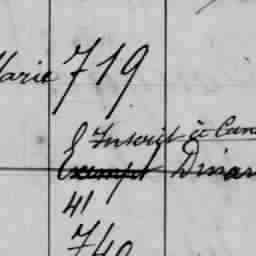 Marie 719
Inscrit à Can
Exempt Dinan
41
740